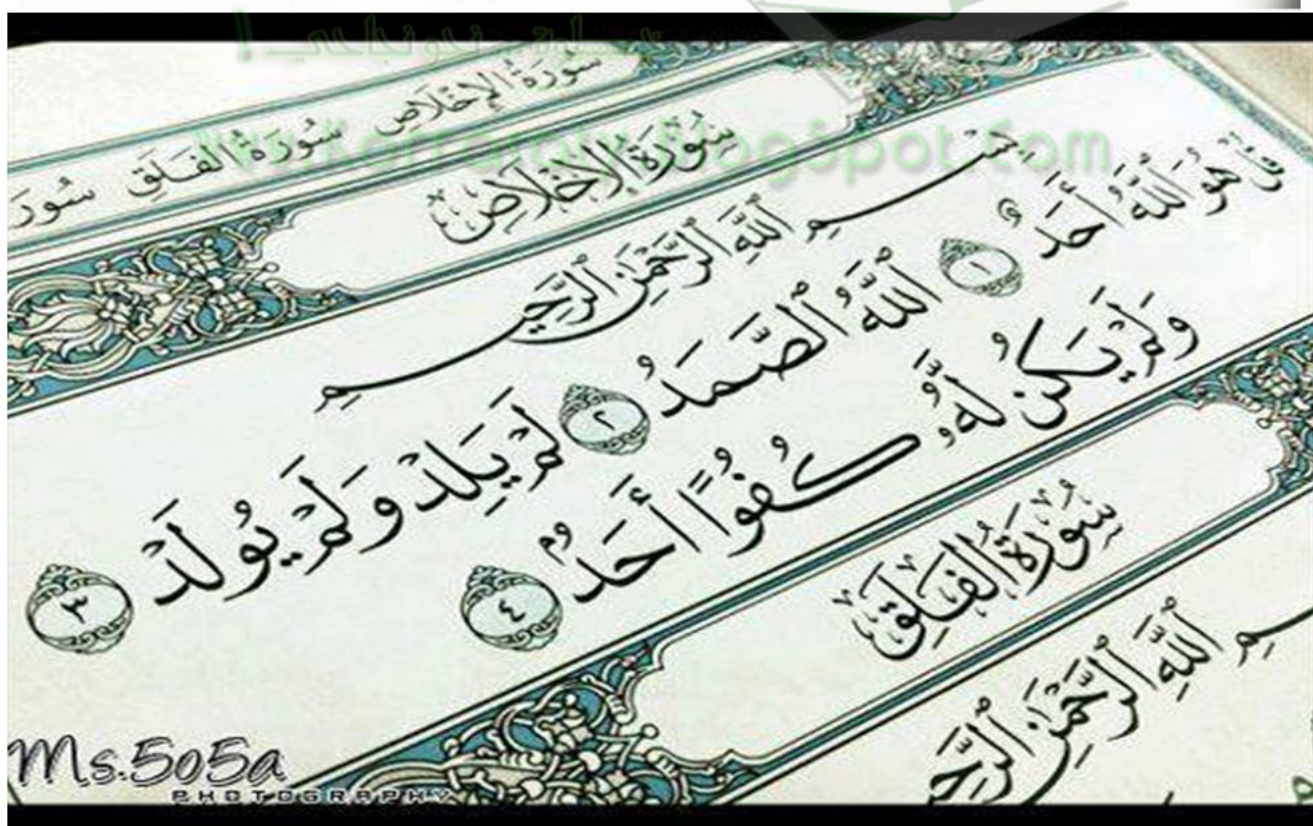 سُورَةُ الإِخْلَاصِ سُورَةُ الفَلَقِ سُورَ
سُورَةُ الإِخْلَاصِ
بِسْمِ ٱللَّهِ ٱلرَّحْمَٰنِ ٱلرَّحِيمِ
قُلْ هُوَ ٱللَّهُ أَحَدٌ ١ ٱللَّهُ ٱلصَّمَدُ ٢ لَمْ يَلِدْ وَلَمْ يُولَدْ ٣
وَلَمْ يَكُن لَّهُۥ كُفُوًا أَحَدٌۢ ٤
سُورَةُ الفَلَقِ
ـسْمِ ٱللَّهِ ٱلرَّحْمَٰنِ ٱلرَّحِـ
Ms.505a
PHOTOGRAPHY